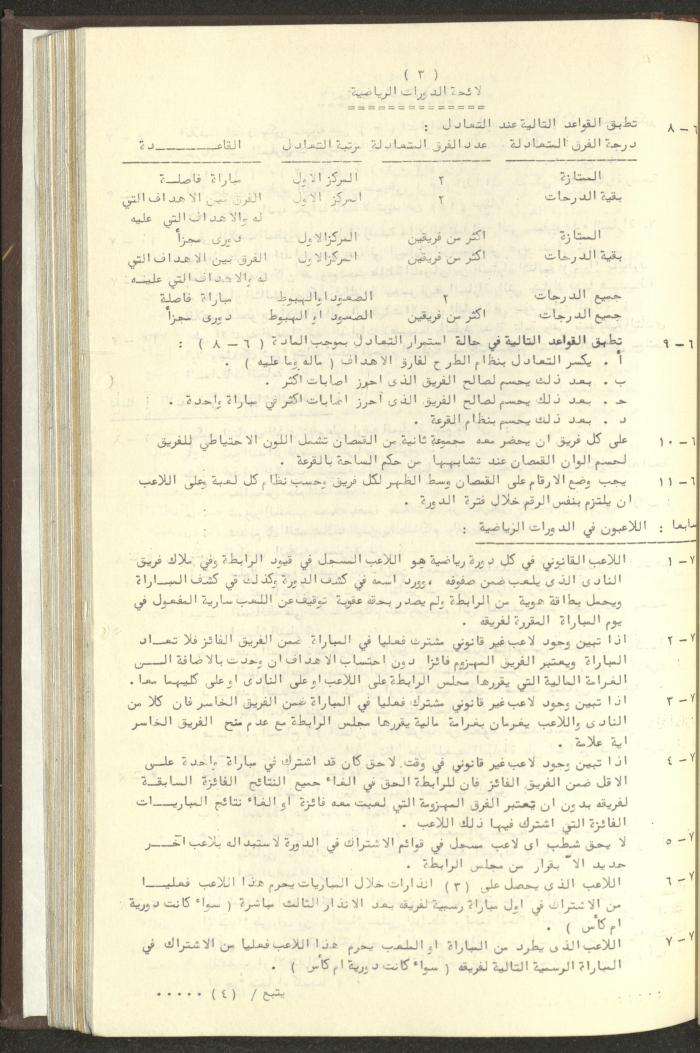 ( ٣ )
لائحة الدورات الرياضية
٦ – ٨ تطبق القواعد التالية عند التعادل :
درجة الفرق المتعادلة عدد الفرق المتعادلة مرتبة التعادل القاعــــــدة
الممتازة ٢ المركز الاول مباراة فاصلــة
بقية الدرجات ٢ المركز الاول الفرق بين الاهداف التي
له والاهداف التي عليه
الممتازة اكثر من فريقين المركز الاول دورى مجزأ
بقية الدرجات اكثر من فريقين المركز الاول الفرق بين الاهداف التي
له والاهداف التي عليــه
جميع الدرجات ٢ الصعود او الهبوط مباراة فاصلة
جميع الدرجات اكثر من فريقين الصعود او الهبوط دورى مجزأ
٦ – ٩ تطبق القواعد التالية في حالة استمرار التعادل بموجب المادة ( ٦ – ٨ ) :
أ . يكسر التعادل بنظام الطرح لفارق الاهداف ( ماله وما عليه ) .
ب . بعد ذلك يحسم لصالح الفريق الذى احرز اصابات اكثر .
حـ . بعد ذلك يحسم لصالح الفريق الذى احرز اصابات اكثر في مباراة واحدة .
د . بعد ذلك يحسم بنظام القرعة .
٦ – ١٠ على كل فريق ان يحضر معه مجموعة ثانية من القمصان تشمل اللون الاحتياطي للفريق
لحسم الوان القمصان عند تشابهها من حكم الساحة بالقرعة .
٦ – ١١ يجب وضع الارقام على القمصان وسط الظهر لكل فريق وحسب نظام كل لعبة وعلى اللاعب
ان يلتزم بنفس الرقم خلال فترة الدورة .
سابعا : اللاعبون في الدورات الرياضية :
٧ – ١ اللاعب القانوني في كل دورة رياضية هو اللاعب المسجل في قيود الرابطة وفي ملاك فريق
النادى الذى يلعب ضمن صفوفه ، وورد اسمه في كشف الدورة وكذلك في كشف المبــاراة
ويحمل بطاقة هوية من الرابطة ولم يصدر بحقه عقوبة توقيف عن اللعب سارية المفعول في
يوم المباراة المقررة لفريقه .
٧ – ٢ اذا تبين وجود لاعب غير قانوني مشترك فعليا في المباراة ضمن الفريق الفائز فلا تعــاد
المباراة ويعتبر الفريق المهزوم فائزا دون احتساب الاهداف ان وجدت بالاضافة الــى
الغرامة المالية التي يقررها مجلس الرابطة على اللاعب او على النادى او على كليهما معا .
٧ – ٣ اذا تبين وجود لاعب غير قانوني مشترك فعليا في المباراة ضمن الفريق الخاسر فان كلا من
النادى واللاعب يغرمان بغرامة مالية يقررها مجلس الرابطة مع عدم منح الفريق الخاسر
اية علامة .
٧ – ٤ اذا تبين وجود لاعب غير قانوني في وقت لاحق كان قد اشترك في مباراة واحدة علــى
الاقل ضمن الفريق الفائز فان للرابطة الحق في الغاء جميع النتائج الفائزة السابقــة
لفريقه بدون ان تعتبر الفرق المهزومة التي لعبت معه فائزة او الغاء نتائج المباريــات
الفائزة التي اشترك فيها ذلك اللاعب .
٧ – ٥ لا يحق شطب اى لاعب مسجل في قوائم الاشتراك في الدورة لاستبداله بلاعب آخــر
جديد الاّ بقرار من مجلس الرابطة .
٧ – ٦ اللاعب الذى يحصل على (٣) انذارات خلال المباريات يحرم هذا اللاعب فعليــا
من الاشتراك في اول مباراة رسمية لفريقه بعد الانذار الثالث مباشرة ( سواء كانت دورية
ام كأس ) .
٧ – ٧ اللاعب الذى يطرد من المباراة او الملعب يحرم هذا اللاعب فعليا من الاشتراك في
المباراة الرسمية التالية لفريقه ( سواء كانت دورية ام كأس ) .
يتبع / (٤) ٠٠٠٠٠